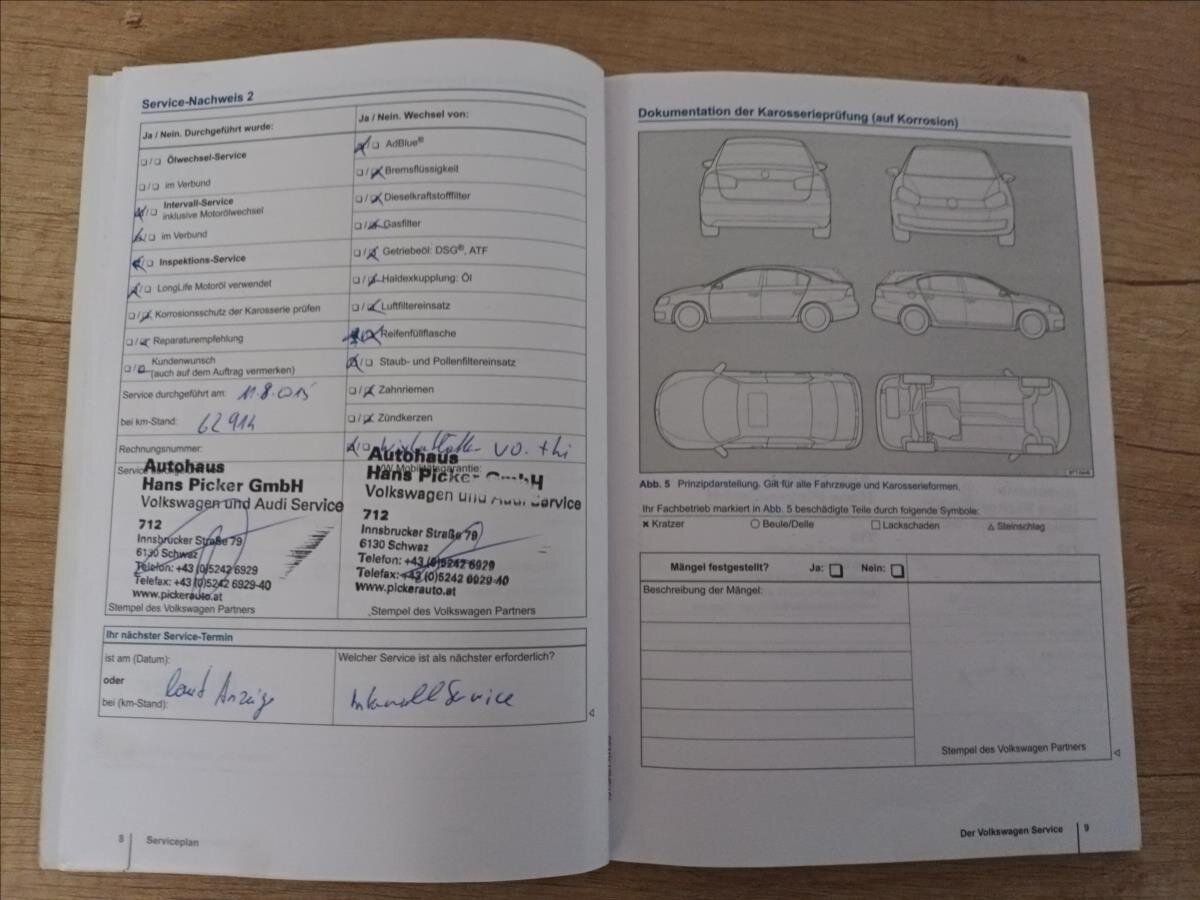 Service-Nachweis 2
Ja / Nein. Durchgeführt wurde:
❑/❑ Ölwechsel-Service
❑/❑ im Verbund
❑/❑ Intervall-Service
inklusive Motorölwechsel
❑/❑ im Verbund
❑/❑ Inspektions-Service
❑/❑ LongLife Motoröl verwendet
❑/❑ Korrosionsschutz der Karosserie prüfen
❑/❑ Reparaturempfehlung
❑/❑ Kundenwunsch
(auch auf dem Auftrag vermerken)
Service durchgeführt am: 11.8.015
bei km-Stand: 62914
Rechnungsnummer:
Ja / Nein. Wechsel von:
❑/❑ AdBlue®
❑/❑ Bremsflüssigkeit
❑/❑ Dieselkraftstofffilter
❑/❑ Gasfilter
❑/❑ Getriebeöl: DSG®, ATF
❑/❑ Haldexkupplung: Öl
❑/❑ Luftfiltereinsatz
❑/❑ Reifenfüllflasche
❑/❑ Staub- und Pollenfiltereinsatz
❑/❑ Zahnriemen
❑/❑ Zündkerzen
❑/❑ vo. + hi
Service
Autohaus
Hans Picker GmbH
Volkswagen und Audi Service
712
Innsbrucker Straße 79
6130 Schwaz
Telefon: +43 (0)5242 6929
Telefax: +43 (0)5242 6929-40
www.pickerauto.at
Stempel des Volkswagen Partners
VW Mobilitätsgarantie:
Autohaus
Hans Picker GmbH
Volkswagen und Audi Service
712
Innsbrucker Straße 79
6130 Schwaz
Telefon: +43 (0)5242 6929
Telefax: +43 (0)5242 6929-40
www.pickerauto.at
Stempel des Volkswagen Partners
Ihr nächster Service-Termin
ist am (Datum):
oder
bei (km-Stand):
laut Anzeige
Welcher Service ist als nächster erforderlich?
Intervall Service
8 Serviceplan
Dokumentation der Karosserieprüfung (auf Korrosion)
Abb. 5 Prinzipdarstellung. Gilt für alle Fahrzeuge und Karosserieformen.
Ihr Fachbetrieb markiert in Abb. 5 beschädigte Teile durch folgende Symbole:
× Kratzer ○ Beule/Delle □ Lackschaden △ Steinschlag
Mängel festgestellt? Ja: ❑ Nein: ❑
Beschreibung der Mängel:
Stempel des Volkswagen Partners
Der Volkswagen Service 9